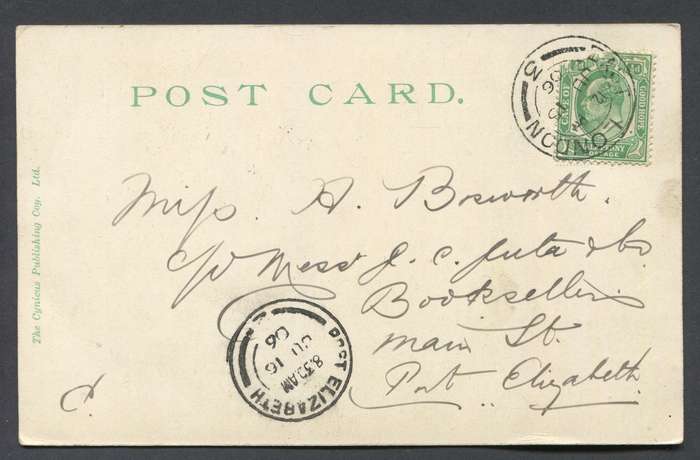 POST CARD.
CAPE OF GOOD HOPE
HALFPENNY
POSTAGE
LONDON
The Cynicus Publishing Coy. Ltd.
Miss. A. Bosworth.
c/o Messrs J. C. Juta & Co
Booksellers
Main St.
Port Elizabeth.
PORT ELIZABETH
8.30 AM
JU 16
06